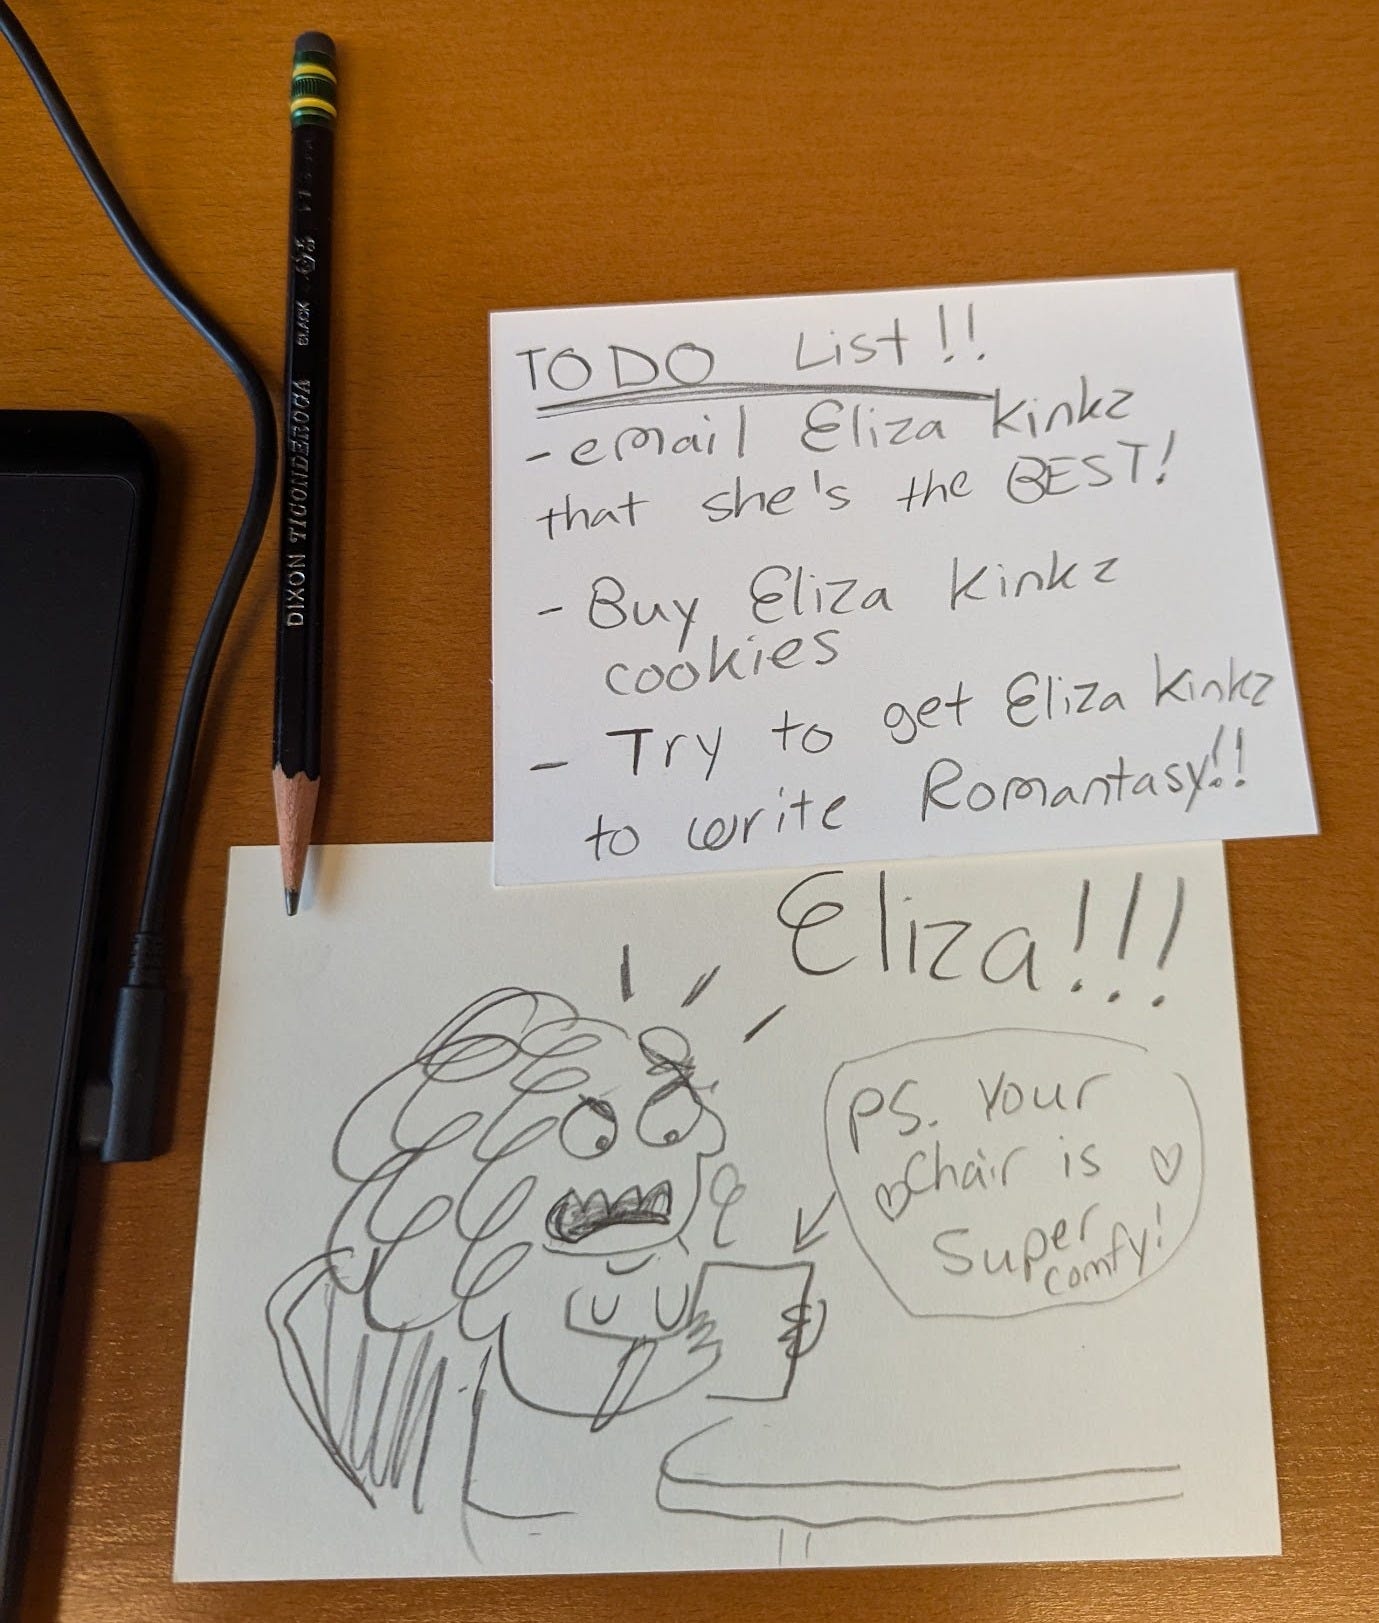 DIXON TICONDEROGA BLACK
TO DO List!!
- email Eliza Kinkz
that she's the BEST!
- Buy Eliza Kinkz
cookies
- Try to get Eliza Kinkz
to write Romantasy!!
Eliza!!!
PS. Your
Chair is
Super
comfy!